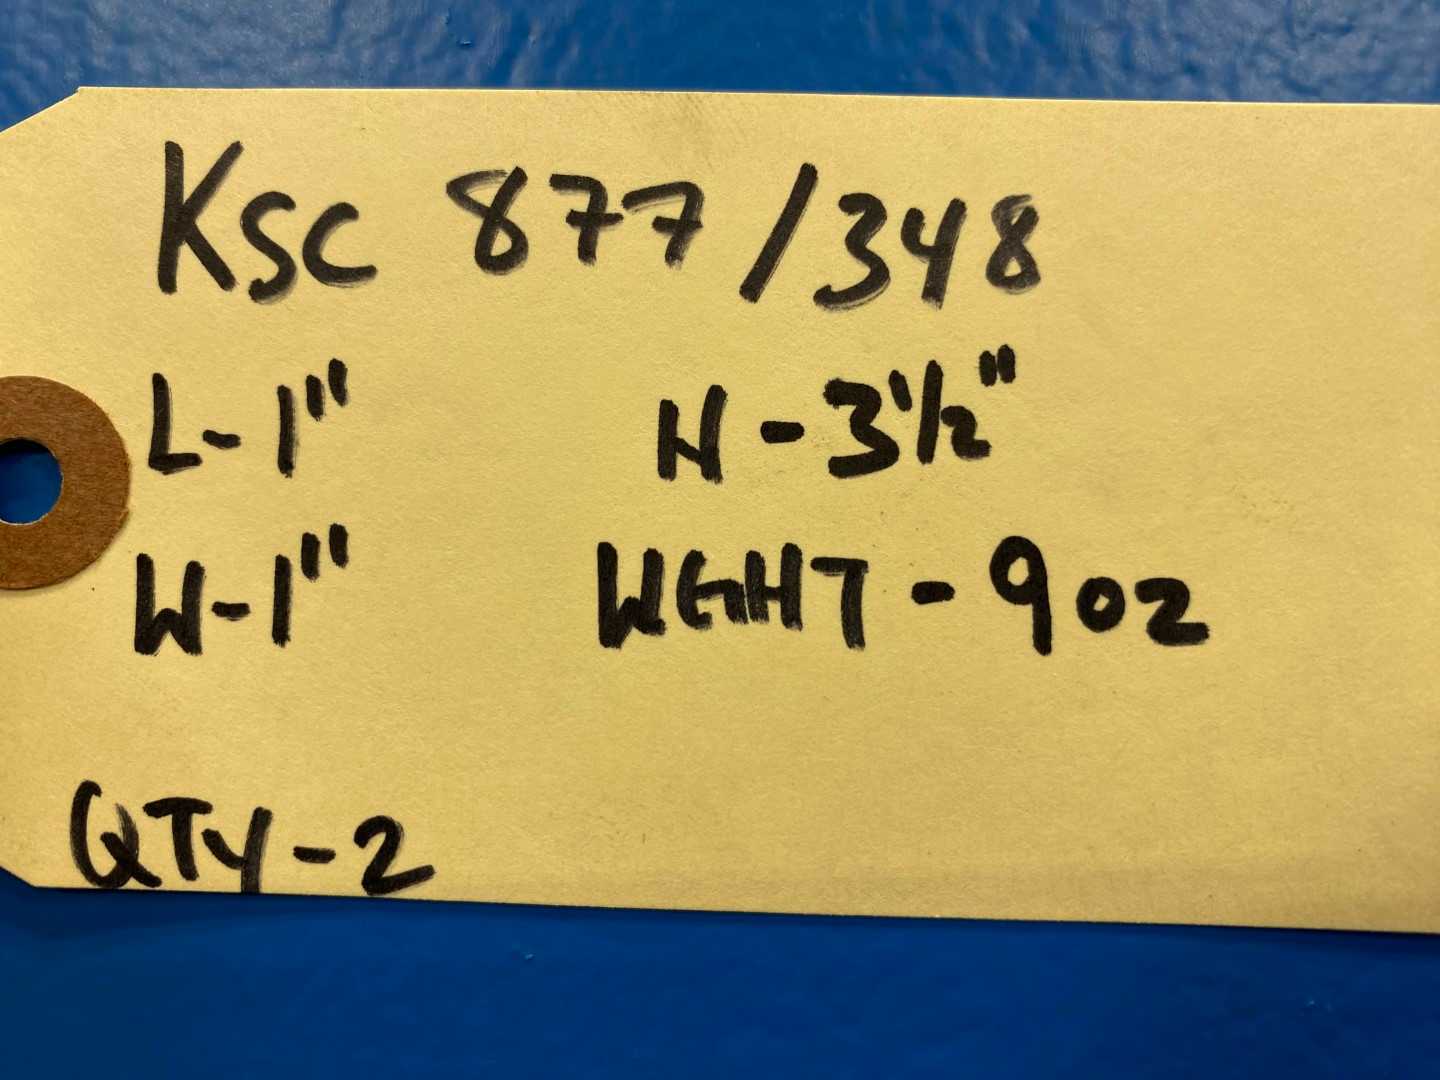 KSC 877/348
L-1" H-3 1/2"
W-1" WGHT-9oz
QTY-2